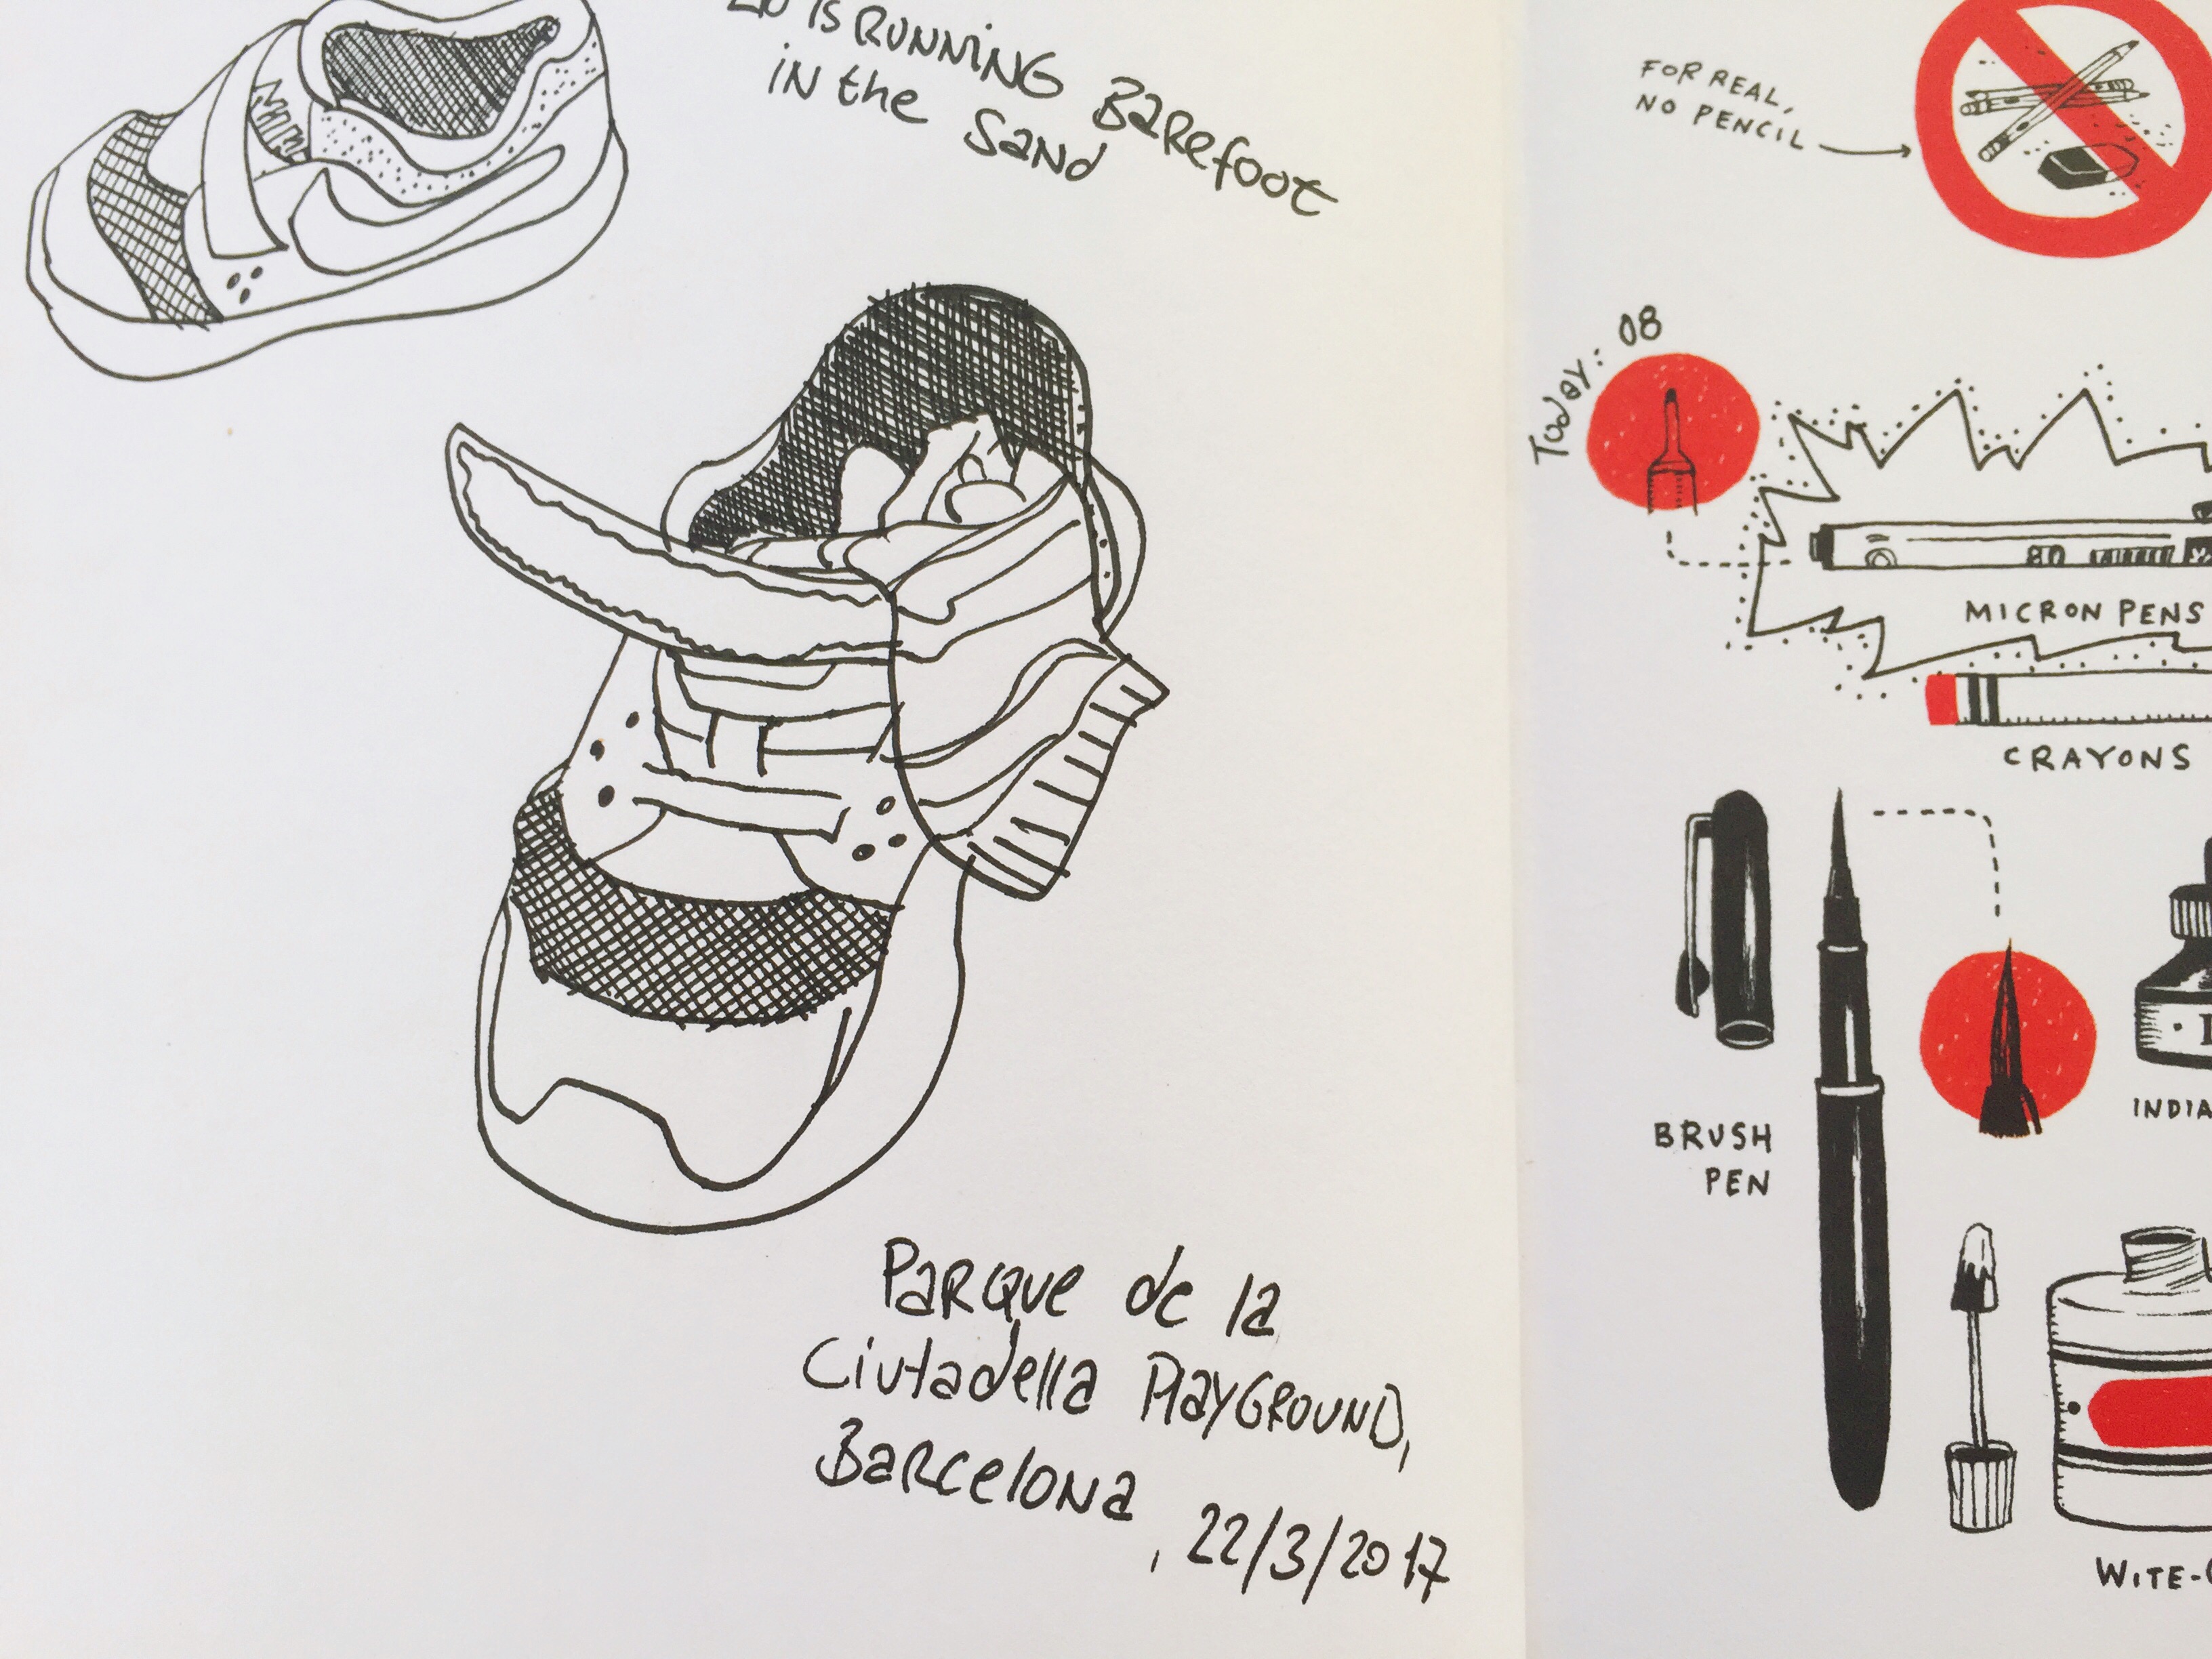 is RUNNING BAREfoot
in the SaNd
PaRque de la
Ciutadella PlayGROUND,
BaRcelona, 22/3/2017
FOR REAL,
NO PENCIL
Today: 08
08
MICRON PENS
CRAYONS
BRUSH
PEN
INDIA
WITE-